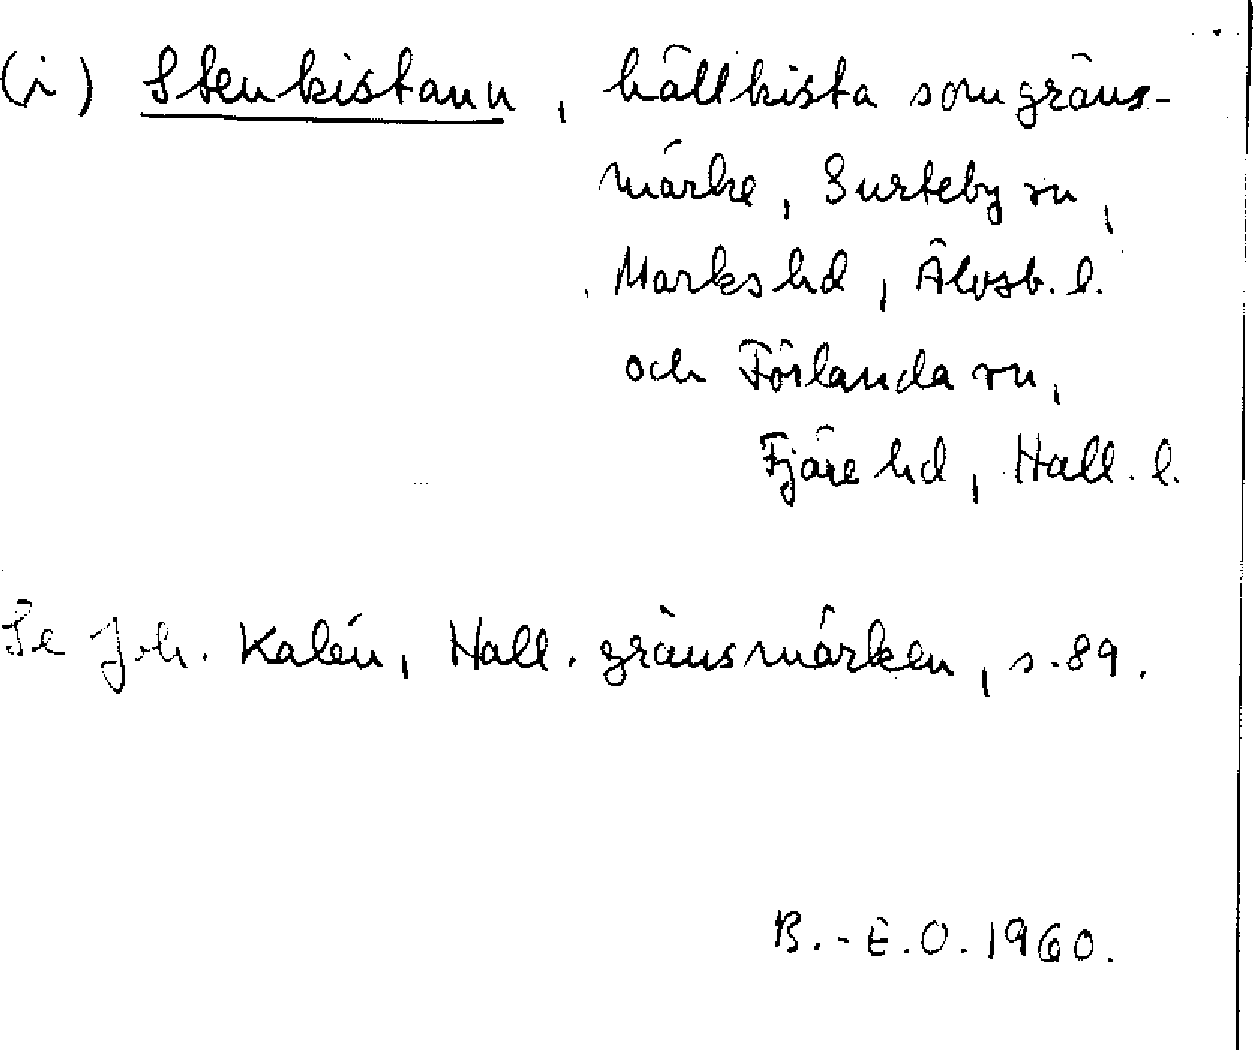 (i) Stenkistann, hällkista som gräns-
märke, Surteby sn,
Marks hd, Älvsb. l.
och Förlanda sn,
Fjäre hd, Hall. l.
Se Joh. Kalén, Hall. gränsmärken, s. 89.
B.-E.O. 1960.